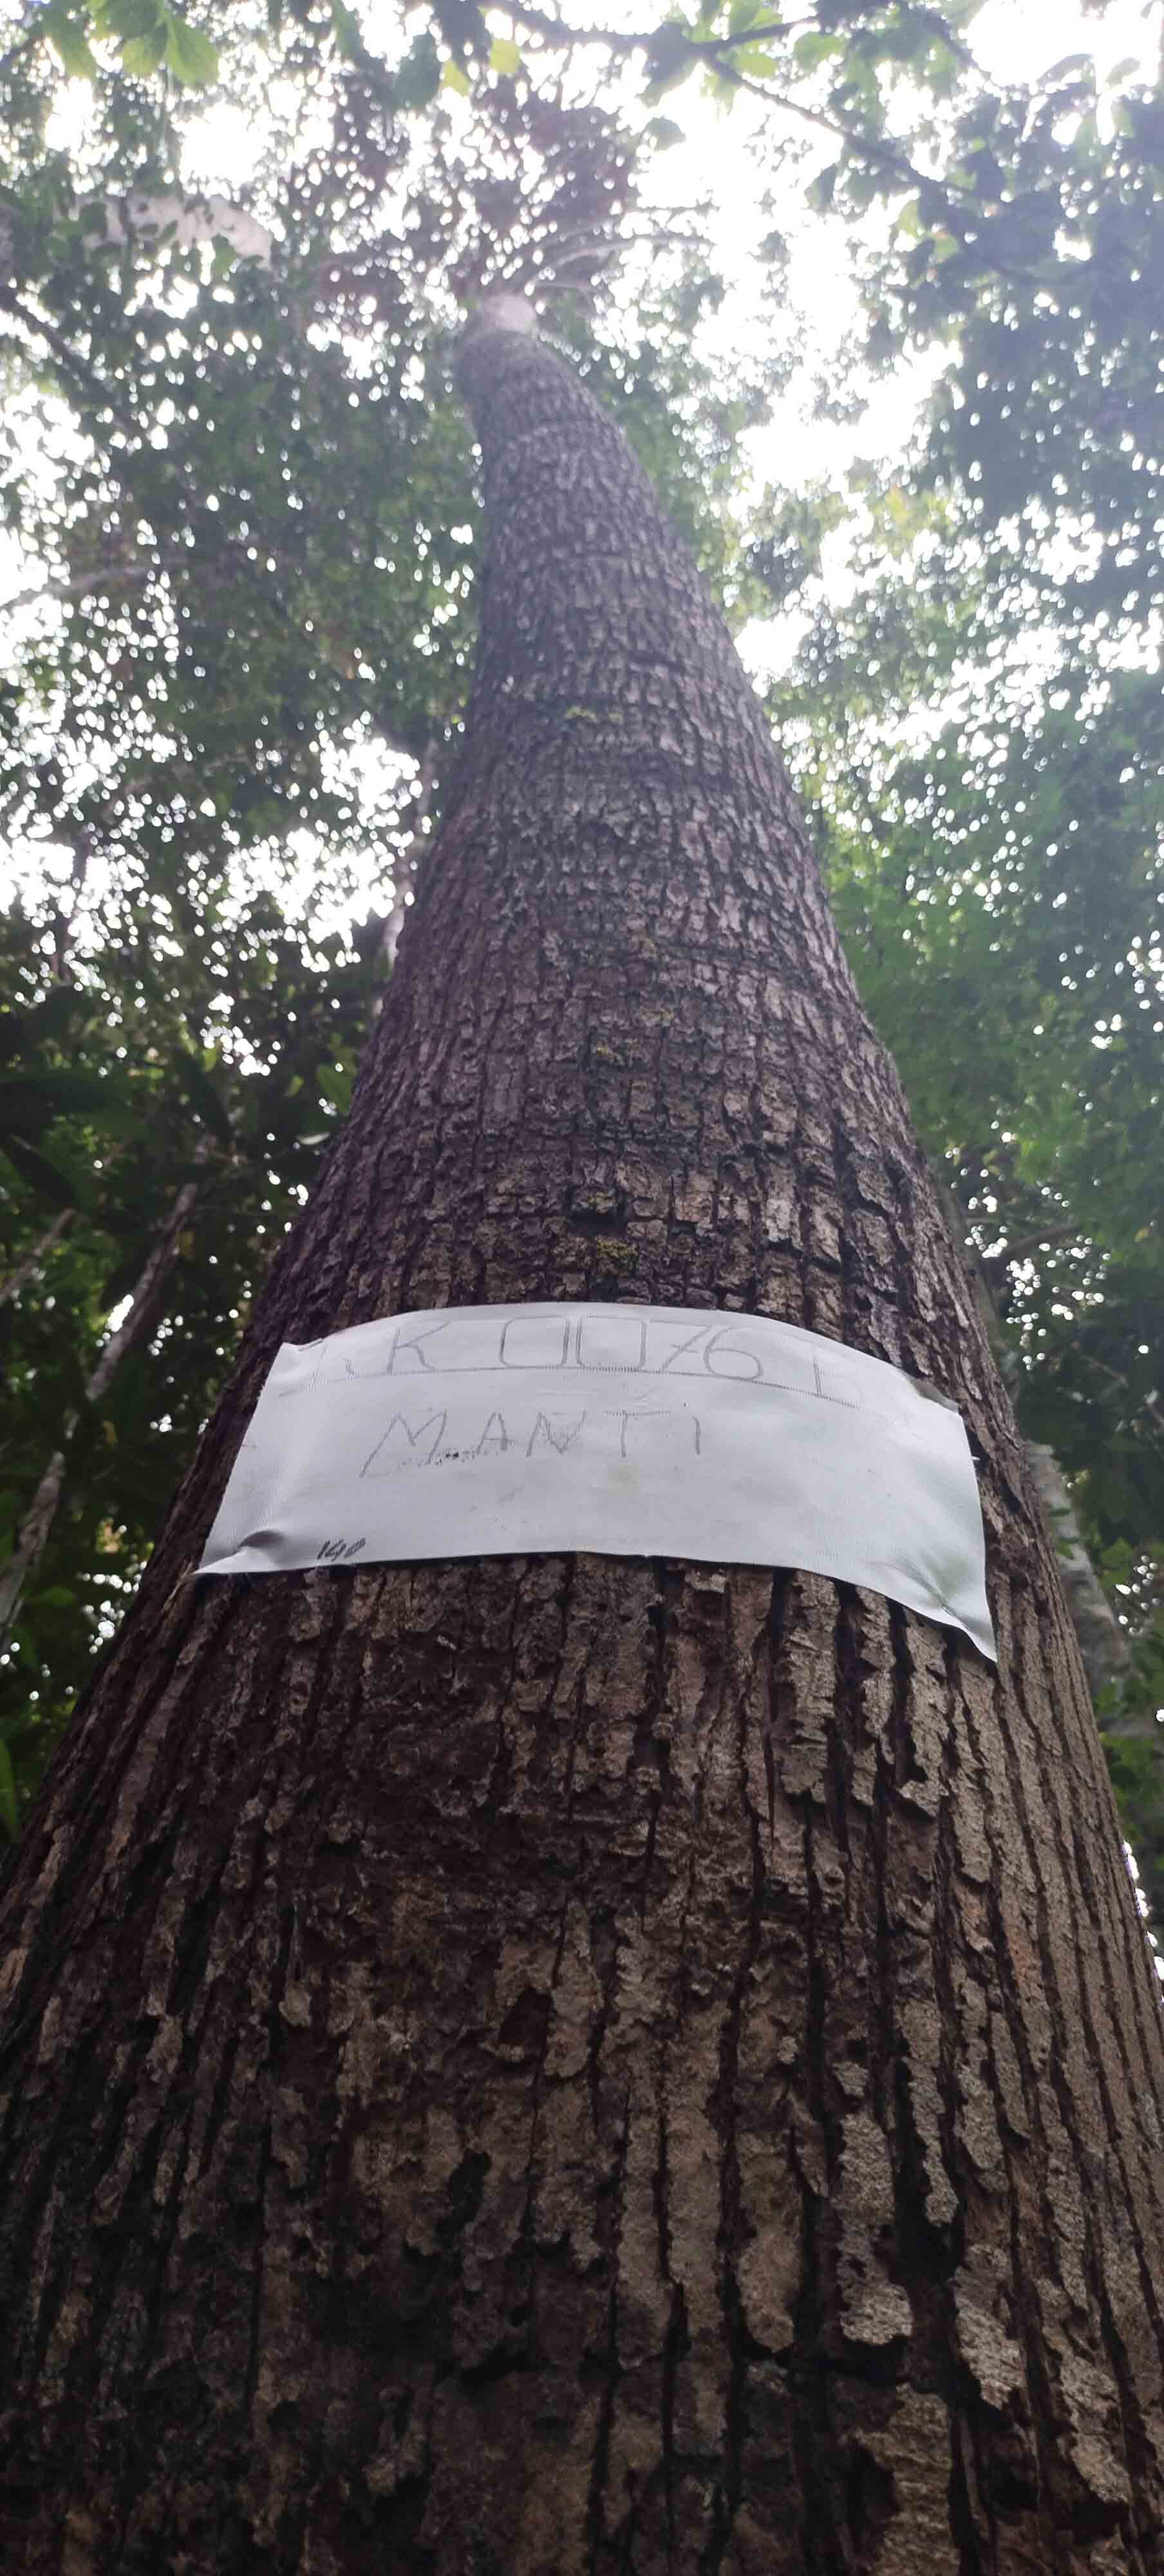 K 0076
MANTI
140